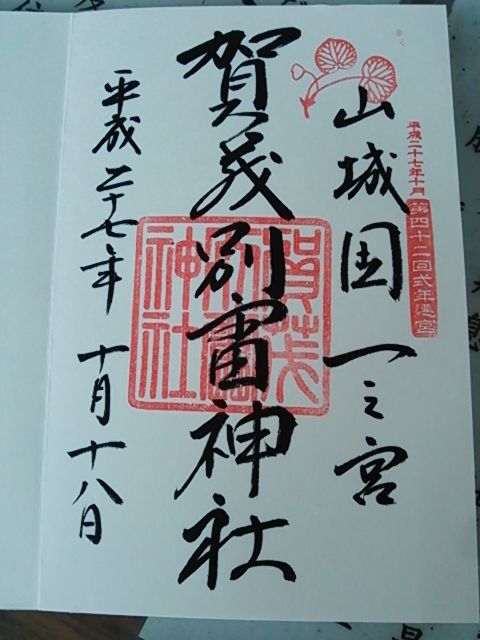 平成二十七年十月
第四十二回式年遷宮
山城国一之宮
賀茂別雷神社
賀茂別雷神社
平成二十七年 十月十八日